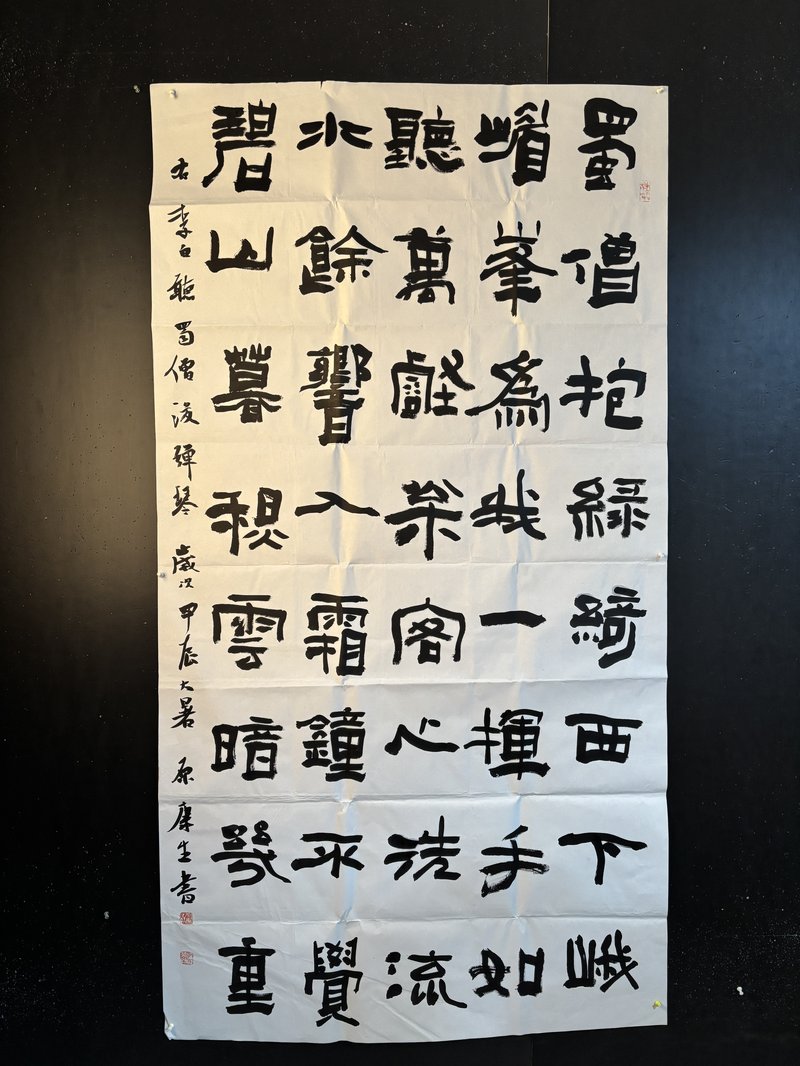 蜀僧抱綠綺西下峨
嵋峯爲我一揮手如
聽萬壑枀客心洗流
水餘響入霜鐘不覺
碧山暮秋雲暗幾重
右李白聽蜀僧浚彈琴 歲次甲辰大暑 原生書